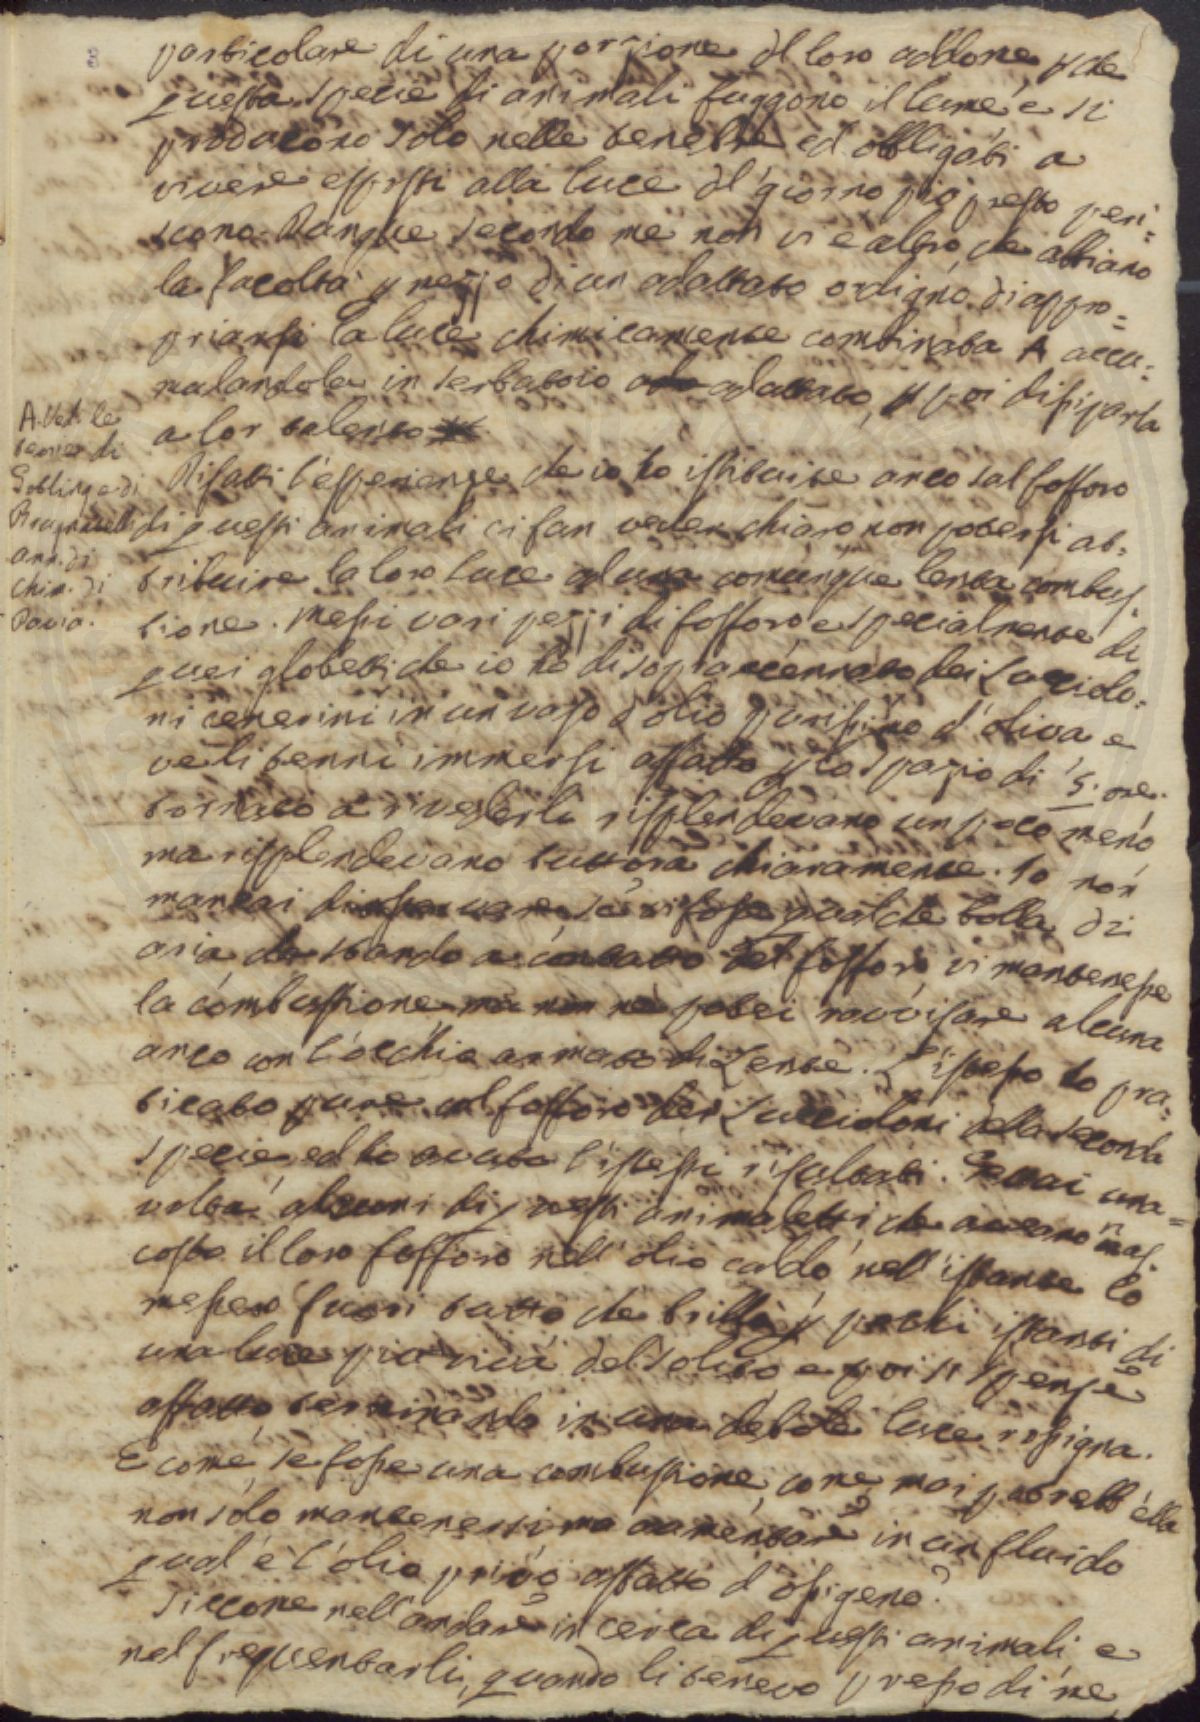 8
particolare di una porzione dl loro addome, p che
questa specie di animali fuggono il lume e si
producono solo nelle tenebre ed obbligati a
vivere esposti alla luce dl giorno più presto peri=
scono. Dunque secondo me non vi è altro, che abbiano
la facoltà p mezzo di un adattato ordigno di appro=
priarsi la luce chimicamente combinata A accu=
mulandola in serbatoio adattato, p poi dissiparla
a lor talento
A. Vedi le
teorie di
Gotling e di
Brugnatelli
ann. di
chim. di
Pavia.
Difatti l'esperienze che io ho istituite anco sul fosforo
di questi animali ci fan veder chiaro non potersi at=
tribuire la loro luce ad una comunque lenta combus=
tione. Messi vari pezzi di fosforo e specialmente di
quei globetti che io ho di sopra accennato dei Luccolo=
ni cenerini in un vaso d'olio purissimo d'oliva e
ve li tenni immersi affatto p lo spazio di 5. ore.
tornato a rivederli risplendevano un poco meno
ma risplendevano tuttora chiaramente. Io non
mancai di osservare se vi fosse qualche bolla di
aria che stando a contatto del fosforo vi mantenesse
la combustione ma non ne potei ravvisare alcuna
anco con l'occhio armato di Lente. L'istesso ho pra=
ticato pure col fosforo dei Luccioloni della seconda
specie, ed ho avuto l'istessi risultati. Gettai una=
volta alcuni di questi animaletti che avevano nas=
costo il loro fosforo nell'olio caldo nell'istante lo
messero fuori tutto che brillò p pochi istanti di
una luce più viva del solito e poi si spense
affatto terminando in una debole luce rossigna.
E come se fosse una combustione, come mai potrebb'ella
non solo mantenersi ma aumentare in un fluido
qual'è l'olio privo affatto d'ossigeno?
Siccome nell'andare in cerca di questi animali e
nel frequentarli, quando li tenevo presso di me